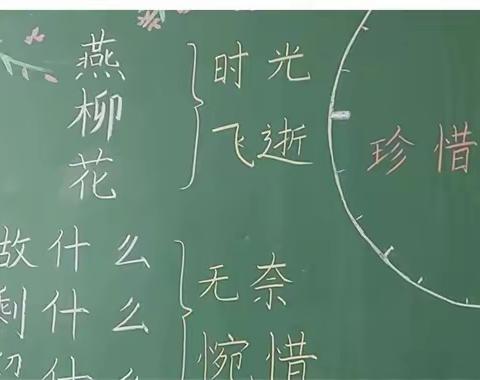 燕
柳
花
时光
飞逝
珍惜
做什么
剩什么
什么
无奈
惋惜